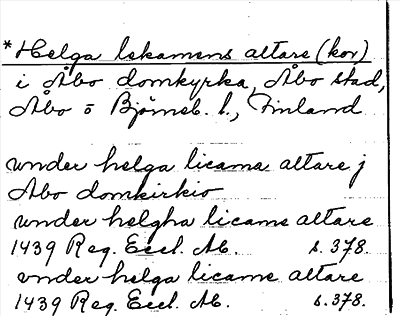 *Helga lekamens altare (kor)
i Åbo domkyrka, Åbo stad,
Åbo o Björneb. l., Finland
under helga licama altare j
Åbo domkirkio
under helgha licams altare
1439 Reg. Eccl. Ab. s. 378.
vnder helga licame altare
1439 Reg. Eccl. Ab. s. 378.